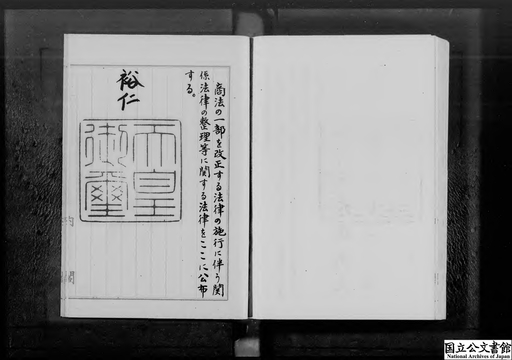 商法の一部を改正する法律の施行に伴う関
係法律の整理等に関する法律をここに公布
する。
裕仁
天皇
御璽
内閣
国立公文書館
National Archives of Japan